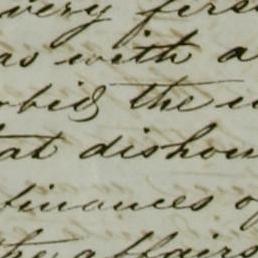 very first
as with a
the
at dishon
finances of
the affairs